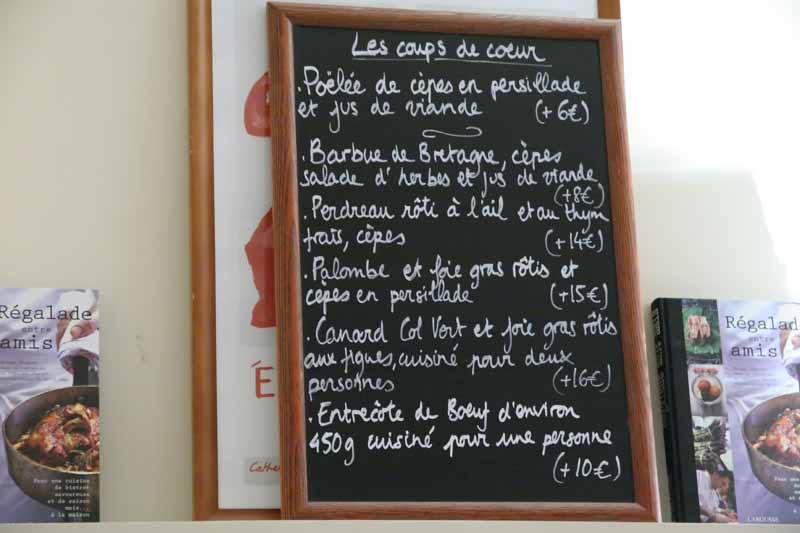 Les coups de coeur
. Poëlée de cèpes en persillade
et jus de viande (+ 6€)
. Barbue de Bretagne, cèpes
salade d'herbes et jus de viande
(+8€)
. Perdreau rôti à l'ail et au thym
frais, cèpes (+14€)
. Palombe et foie gras rôtis et
cèpes en persillade (+15€)
. Canard Col Vert et foie gras rôtis
aux figues, cuisiné pour deux
personnes (+16€)
. Entrecôte de Boeuf d'environ
450g cuisiné pour une personne
(+10€)
Régalade
entre
amis
Pour une cuisine
de bistrot
savoureuse
et de saison
mois...
à la maison
É
Cathe
Régalade
entre
amis
Pour une cuisine
de bistrot
savoureuse
et de saison
mois...
à la maison
LAROUSSE